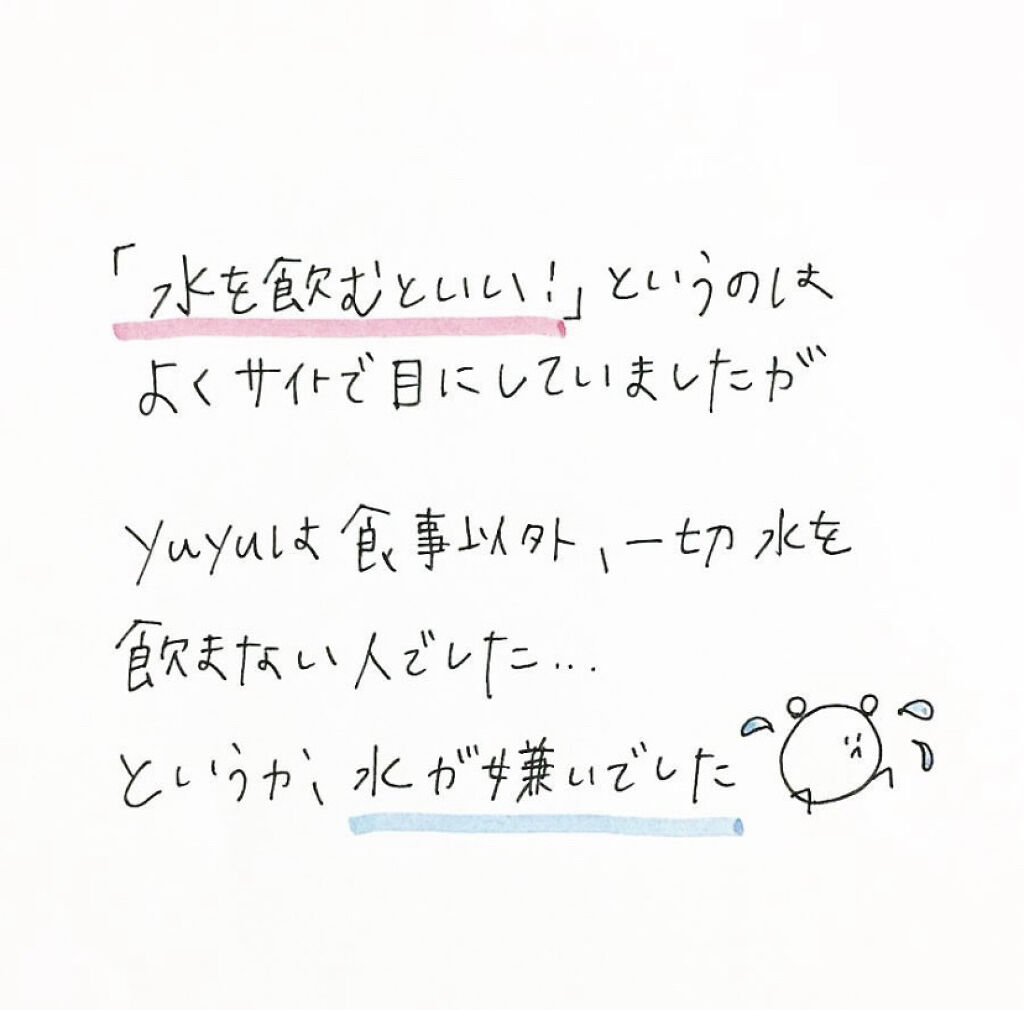 「水を飲むといい！」というのは
よくサイトで目にしていましたが
yuyuは食事以外、一切水を
飲まない人でした...
というか、水が嫌いでした